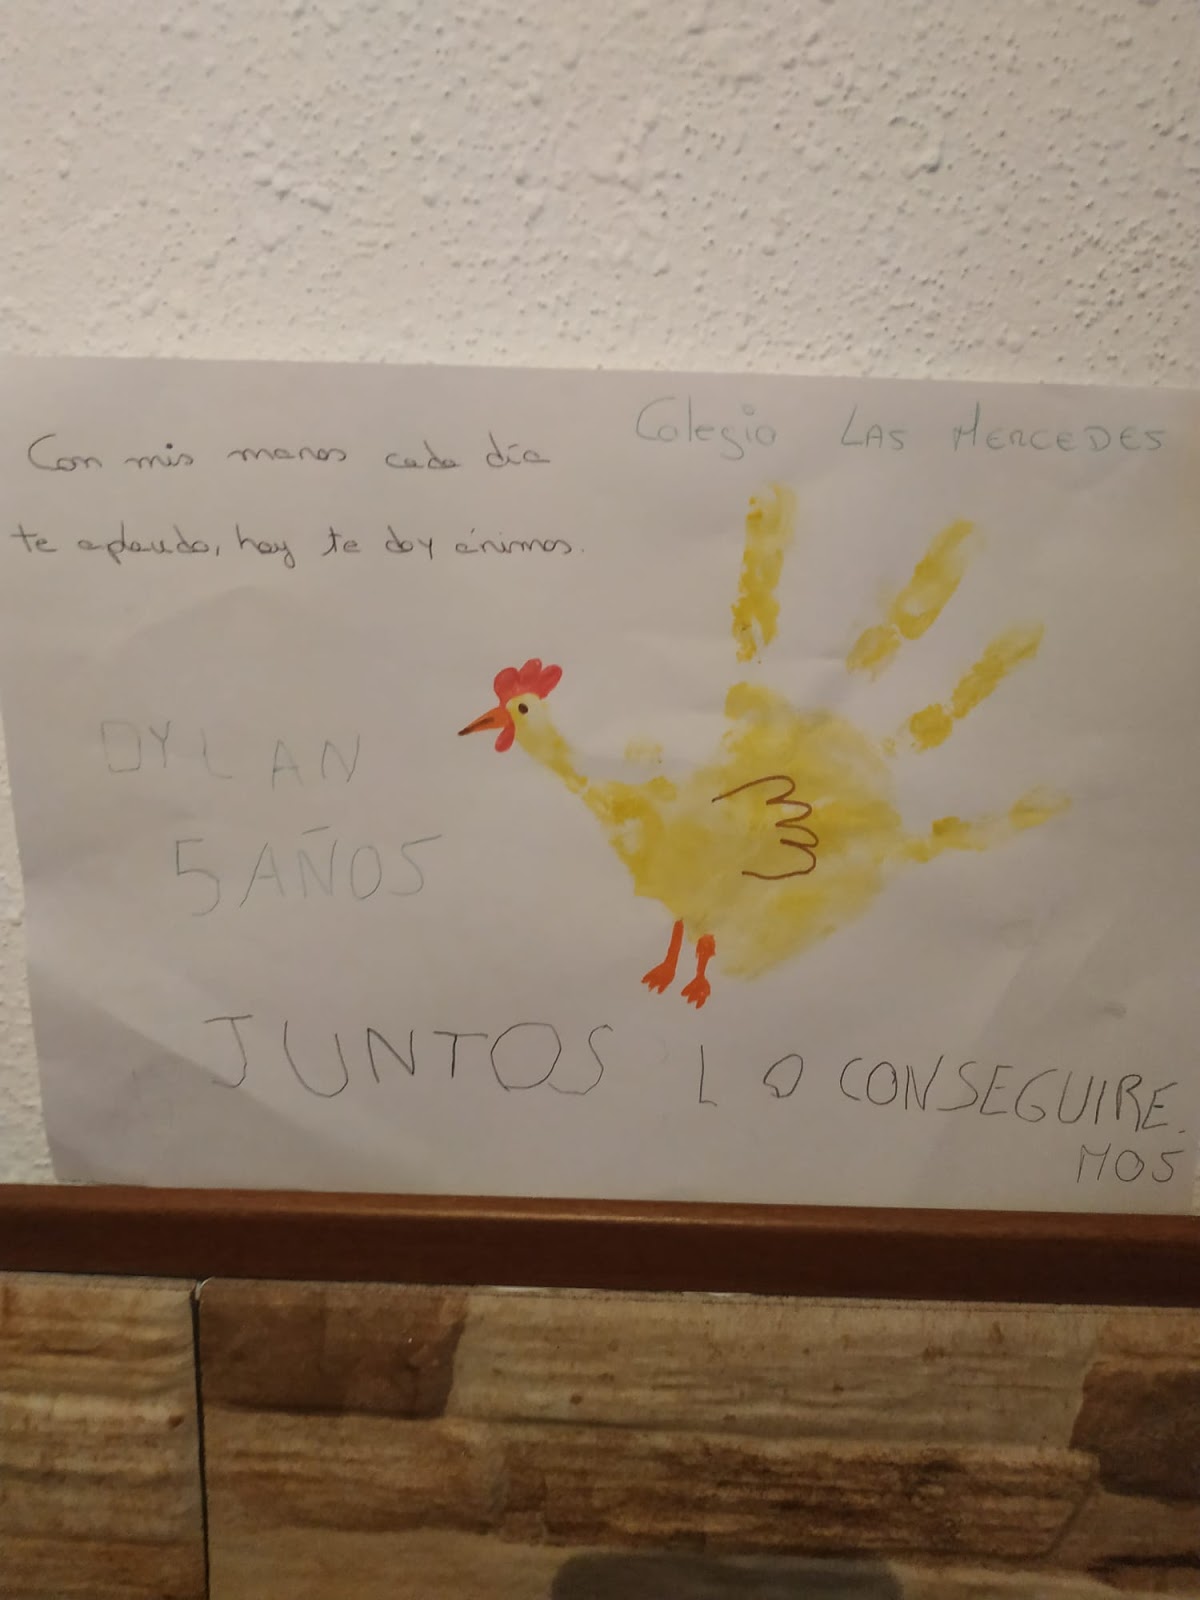 Colegio LAS MERCEDES
Con mis manos cada día
te aplaudo, hoy te doy ánimos.
DYLAN
5 AÑOS
JUNTOS LO CONSEGUIRE.
MOS